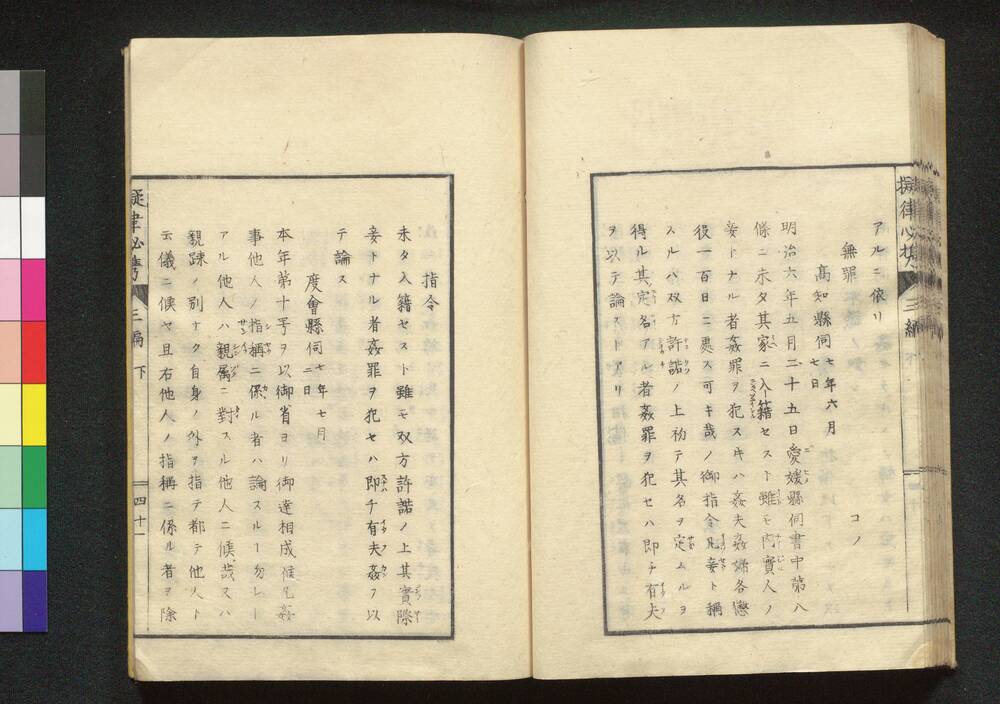 擬律必携 三編
アルニ依リ コノ
無罪
高知縣伺 七年六月七日
明治六年五月二十五日愛媛縣伺書中第八
條ニ未タ其家ニ入籍セスト雖モ内實人ノ
妾トナル者姦罪ヲ犯スキハ姦夫姦婦各懲
役一百日ニ處ス可キ哉ノ御指令凡妾ト稱
スルハ双方許諾ノ上初テ其名ヲ定ムルヲ
得ル其定名アル者姦罪ヲ犯セハ即チ有夫
ヲ以テ論ストアリ
指令
未タ入籍セスト雖モ双方許諾ノ上其實際
妾トナル者姦罪ヲ犯セハ即チ有夫姦ヲ以
テ論ス
度會縣伺 七年七月二日
本年第十号ヲ以御省ヨリ御達相成候凡姦
事他人ノ指稱ニ係ル者ハ論スルヿ勿レト
アル他人ハ親屬ニ對スル他人ニ候哉又ハ
親踈ノ別ナク自身ノ外ヲ指テ都テ他人ト
云儀ニ候ヤ且右他人ノ指稱ニ係ル者ヲ除
三編 下 四十一